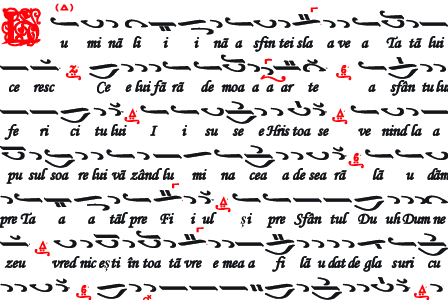 u mi nă li i i nă a sfin tei sla a ve a Ta tă lui
ce resc Ce e lui fă ră de moa a a ar te a sfân tu lu
fe ri ci tu lui I i su se e Hris toa se ve nind la a
pu sul soa re lui vă zând lu mi na cea a de sea ră lă u dăm
pre Ta a a tăl pre Fi i ul și pre Sfân tul Du uh Dum ne
zeu vred nic ești în toa tă vre e mea a fi lă u dat de gla suri cu